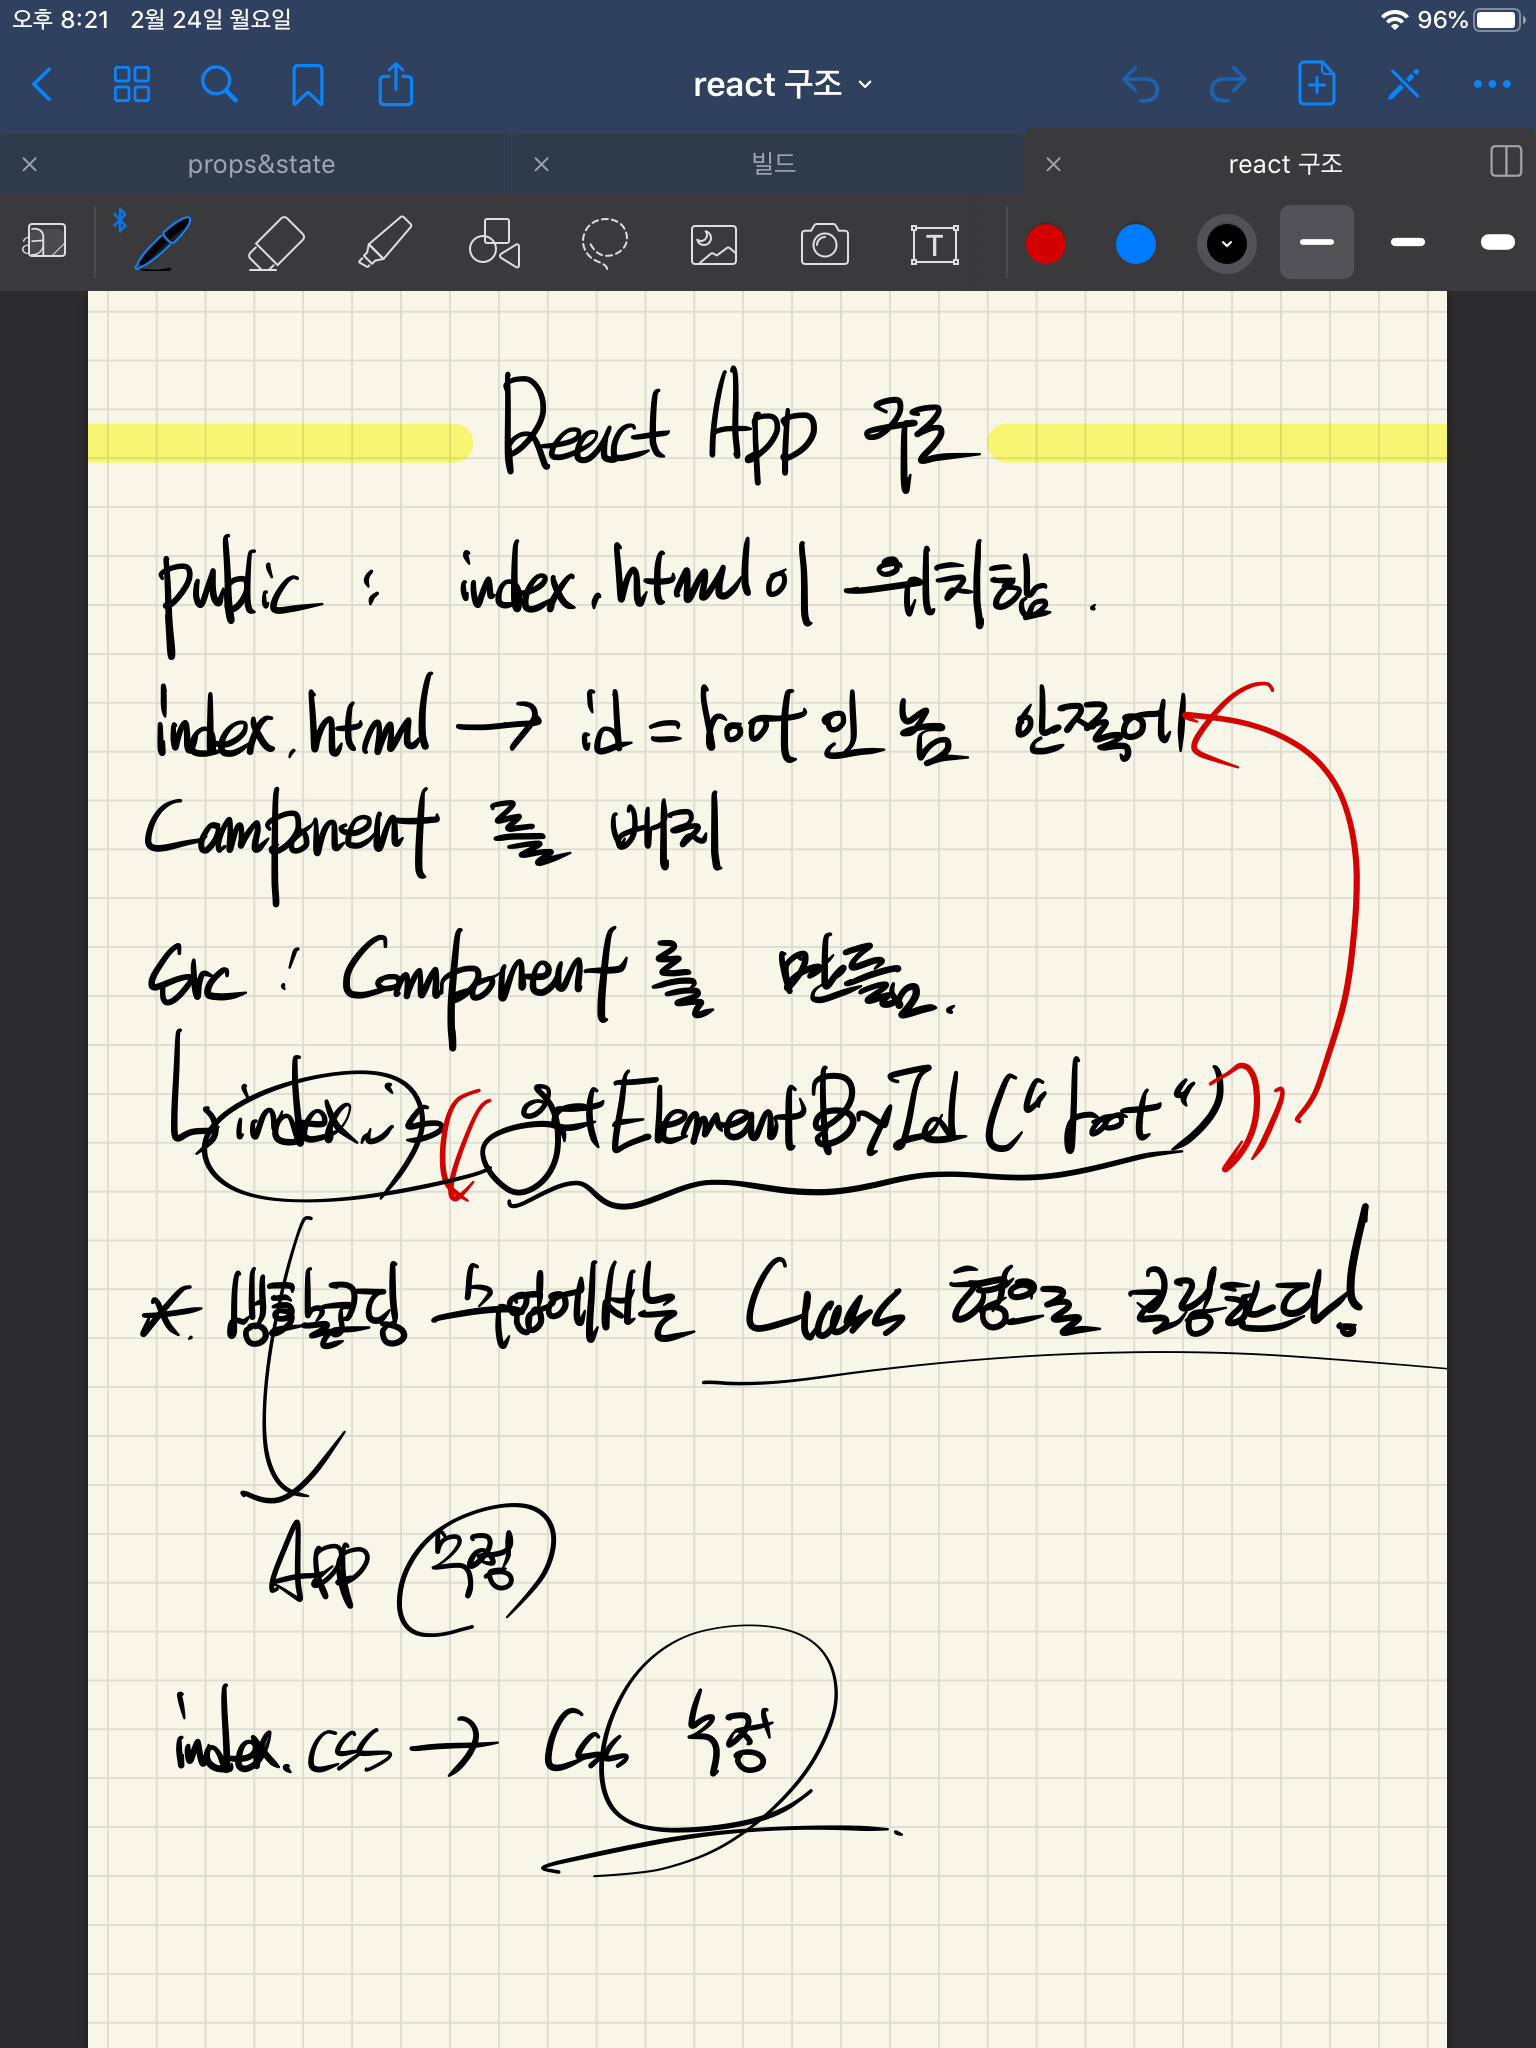 오후 8:21 2월 24일 월요일 96%
react 구조
props&state 빌드 react 구조
T
React App 구조
public : index.html이 위치함.
index.html → id = root 인 놈 안쪽에
Component 를 배치
Src : Component 를 만듦.
index.js getElementById ("root")
* 생활코딩 수업에서는 Class 형으로 코딩한다!
App 수정
index.css → Css 수정